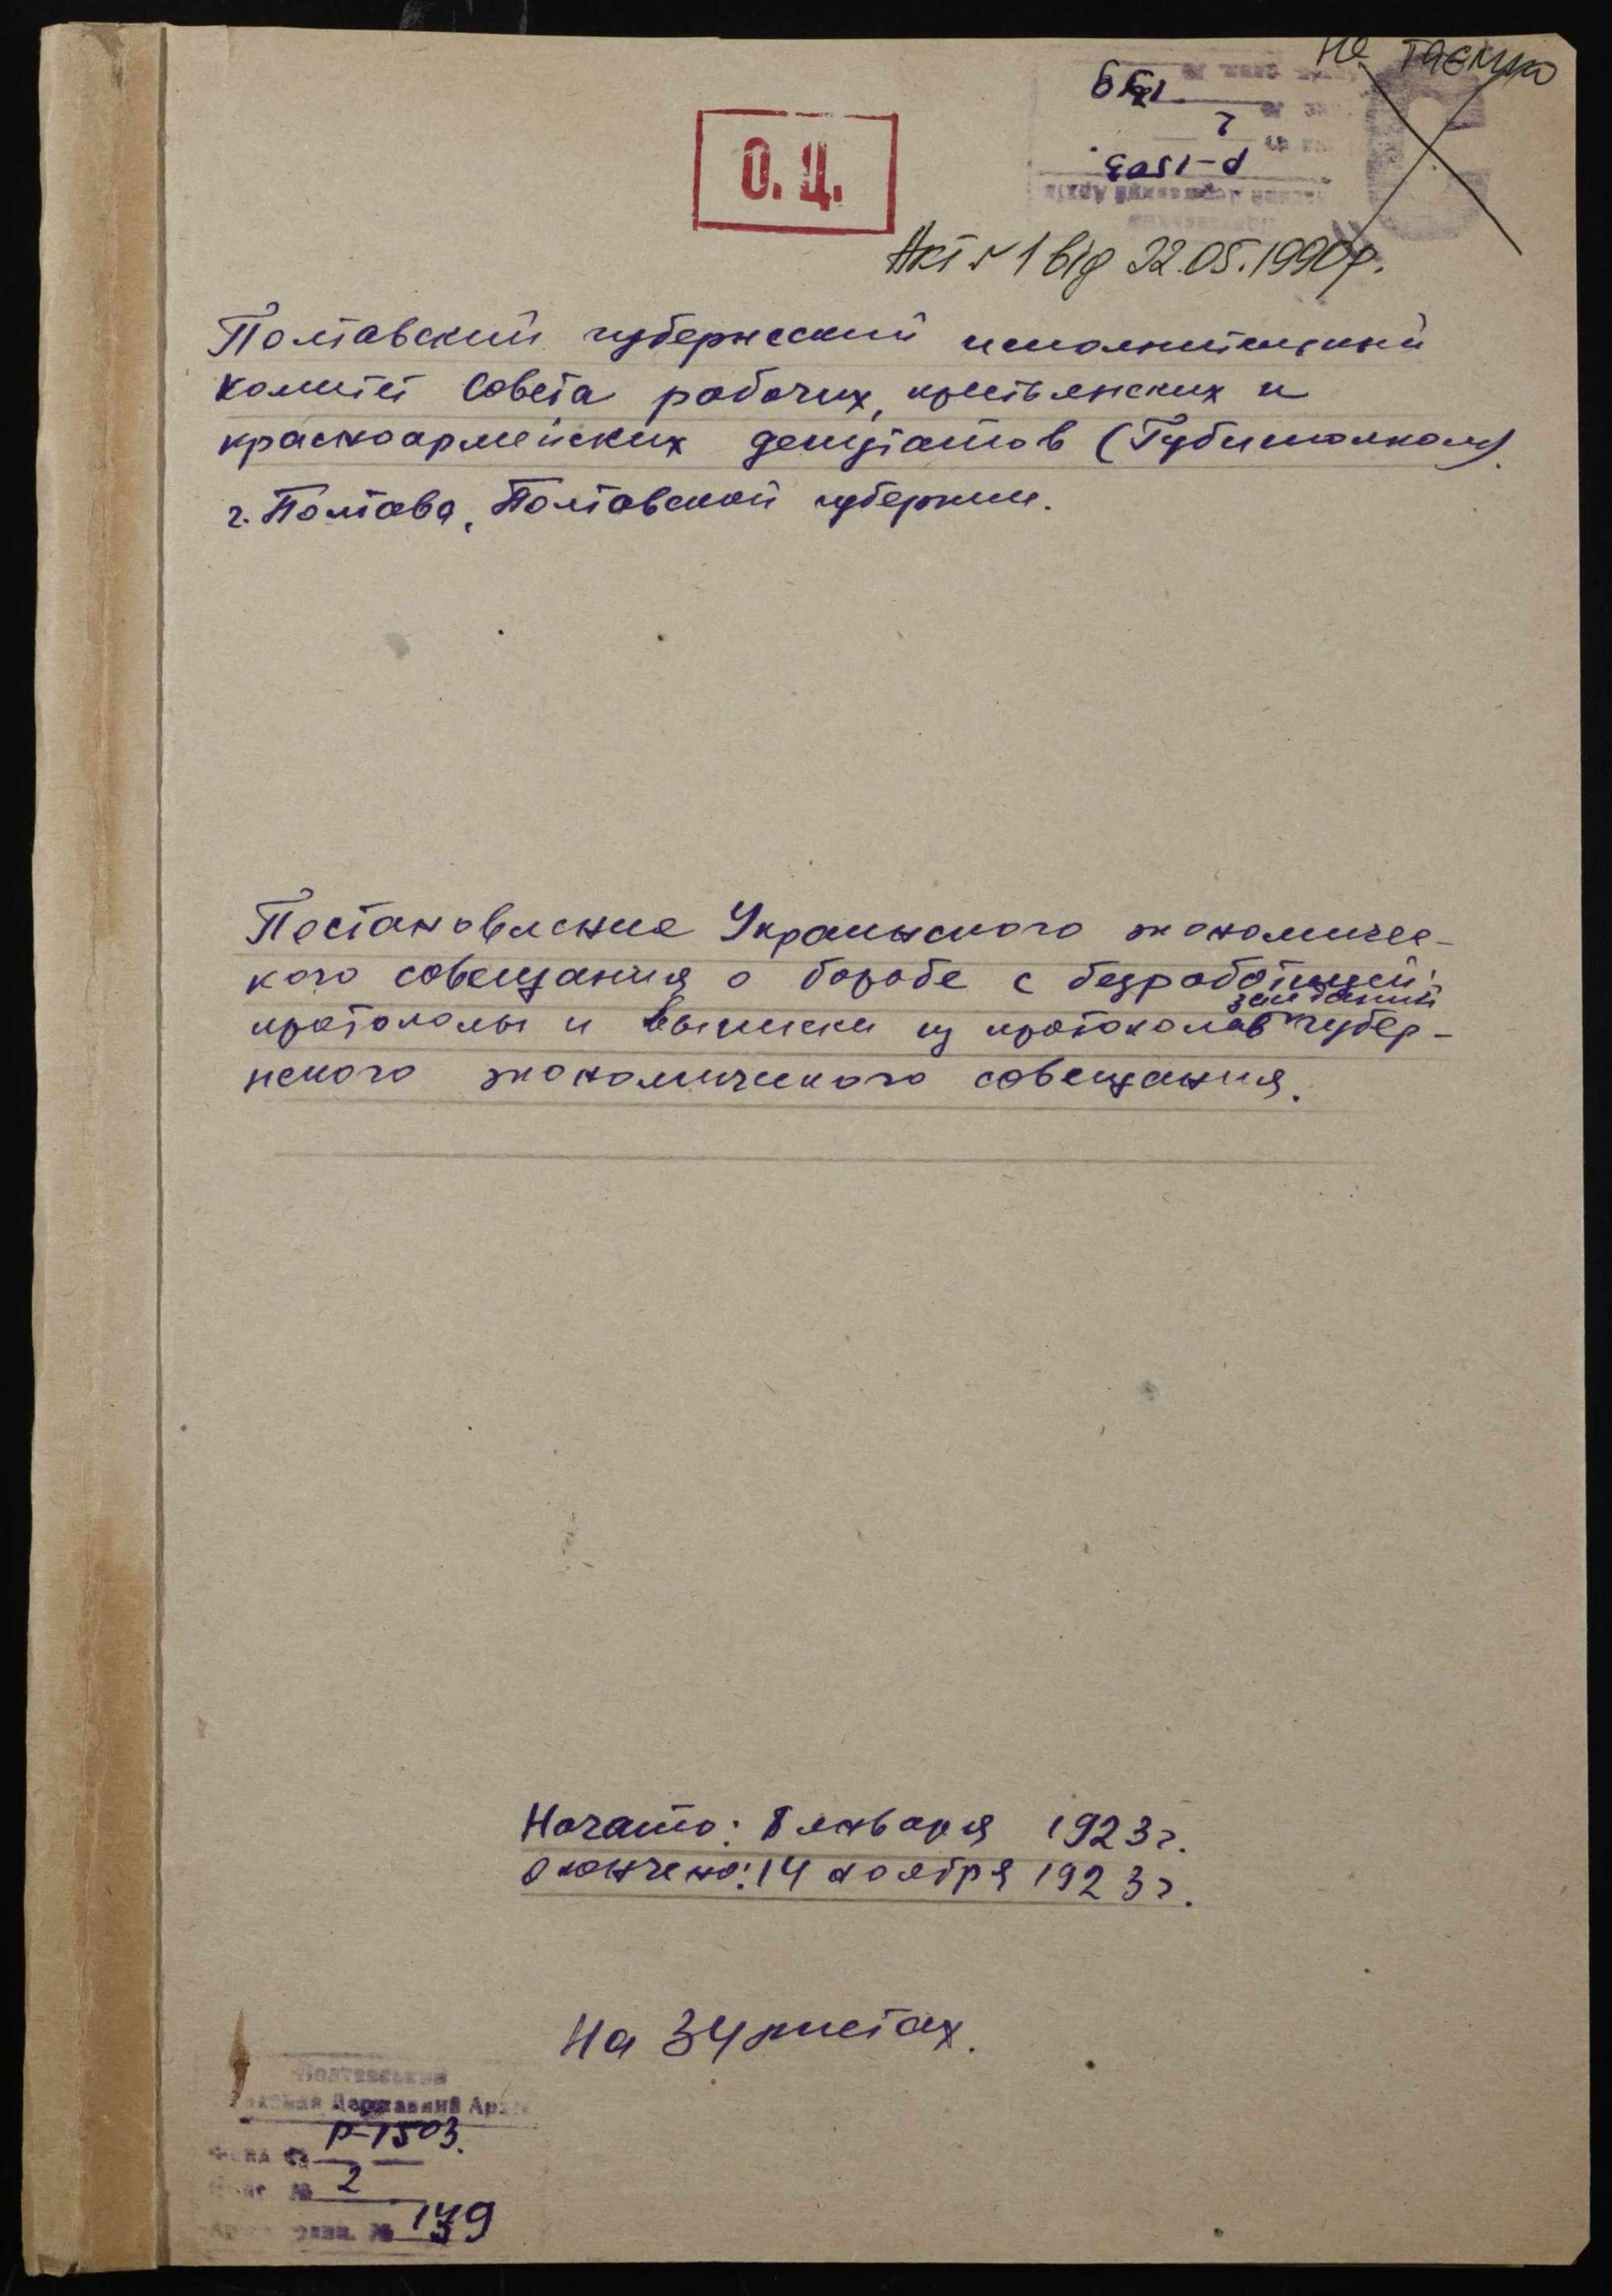 не таємно
О. Ц.
Р-1503.
2
Акт № 1 від 22.05.1990р.
Полтавский губернский исполнительный
комитет Совета рабочих, крестьянских и
красноармейских депутатов (Губисполком)
г. Полтава, Полтавской губернии.
Постановление Украинского экономичес-
кого совещания о борьбе с безработицей;
заседаний
протоколы и выписки из протоколов губер-
нского экономического совещания.
Начато: 8 января 1923 г.
Окончено: 14 ноября 1923 г.
На 34 листах.
Полтавський
Державний Архів
Р-1503.
Фонд №
2